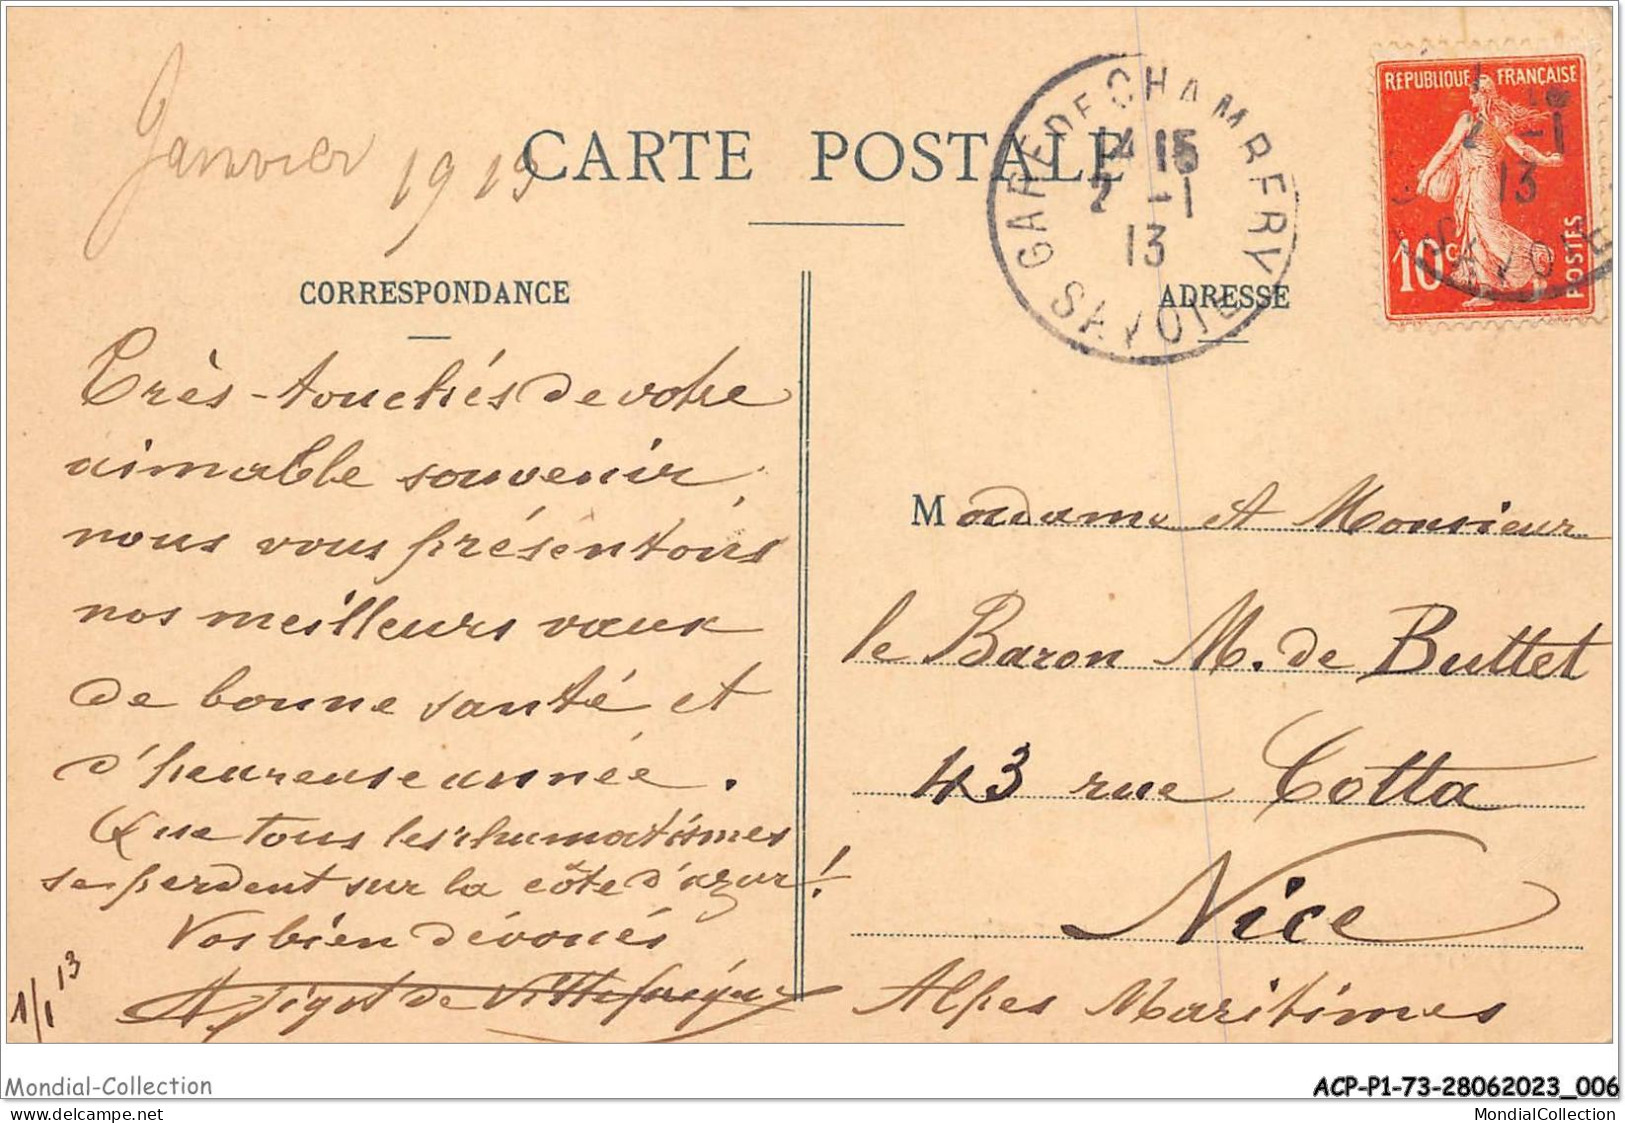 Janvier 1913
CARTE POSTALE
GARE DE CHAMBERY
14 15
2 -1
13
SAVOIE
REPUBLIQUE FRANÇAISE
2 -1
13
SAVOIE
10 c
POSTES
CORRESPONDANCE
Très-touchés de votre
aimable souvenir,
nous vous présentons
nos meilleurs vœux
de bonne santé et
d'heureuse année.
Que tous les rhumatismes
se perdent sur la côte d'azur!
Vos bien dévoués
de
1/1 13
ADRESSE
Madame et Monsieur
le Baron M. de Buttet
43 rue Cotta
Nice
Alpes Maritimes
Mondial-Collection
ACP-P1-73-28062023_006
MondialCollection.delcampe.net
MondialCollection